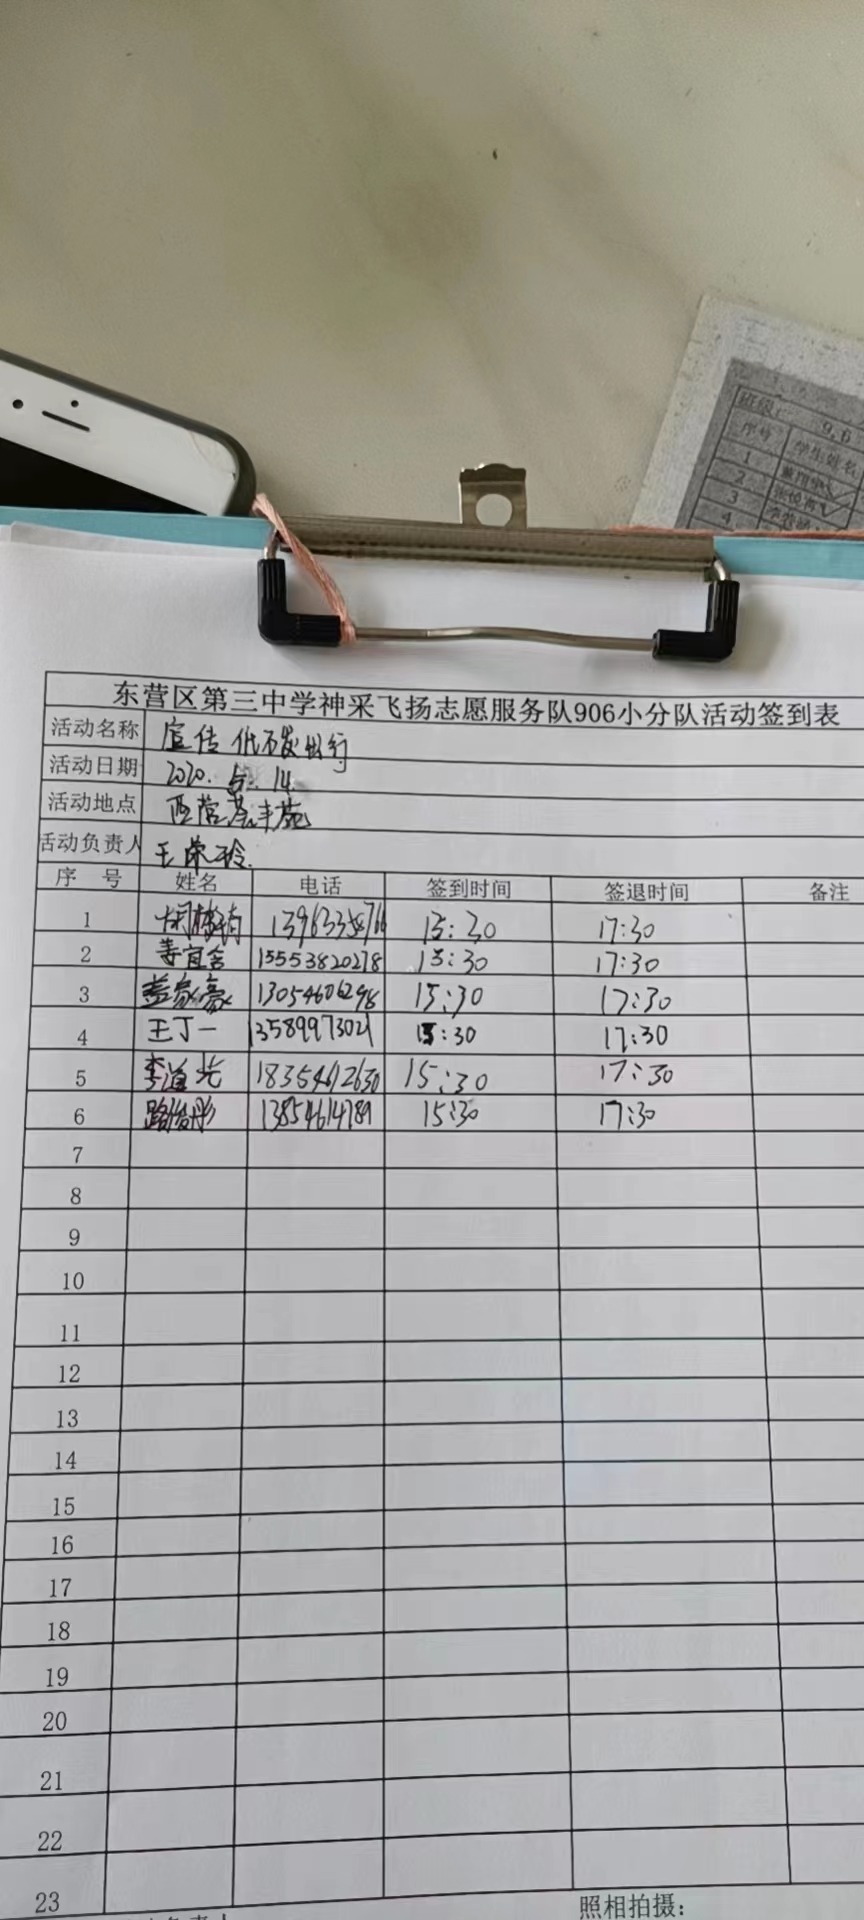 班级: 9.6
序号 学生姓名
1
2
3
4
东营区第三中学神采飞扬志愿服务队906小分队活动签到表
活动名称 宣传低碳出行
活动日期 2020.5.14
活动地点 西营
活动负责人 王荣玲.
序 号 姓名 电话 签到时间 签退时间 备注
1 15:30 17:30
2 15553820278 15:30 17:30
3 盖家豪 13054606298 15:30 17:30
4 王丁一 13589973021 15:30 17:30
5 李道光 18354612630 15:30 17:30
6 路俊彤 13854614789 15:30 17:30
7
8
9
10
11
12
13
14
15
16
17
18
19
20
21
22
23
照相拍摄: